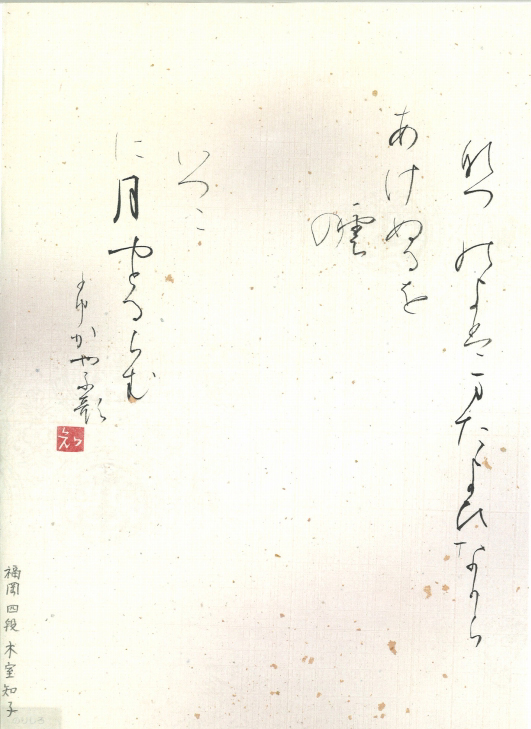 なつのよはまたよひなから
あけぬるを
雲の
いつこ
に月やとるらむ
ふかやふ歌
知
福岡 四段 木室知子